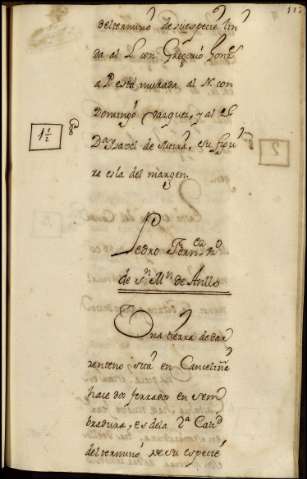 del termino de su especie lin
da al L. con Gregorio Gonz.s
a P. está murada al N. con
Domingo Vazquez, y al
D.a Isavel de Sierra, su figu
ra es la del margen.
1 1/2
Pedro Fern.ez
de S.n M.n de Anllo
Una tierra de
senteno sita en
hace dos ferrados en sem
bradura, es dela 2.a Calid.d
del termino de su especie